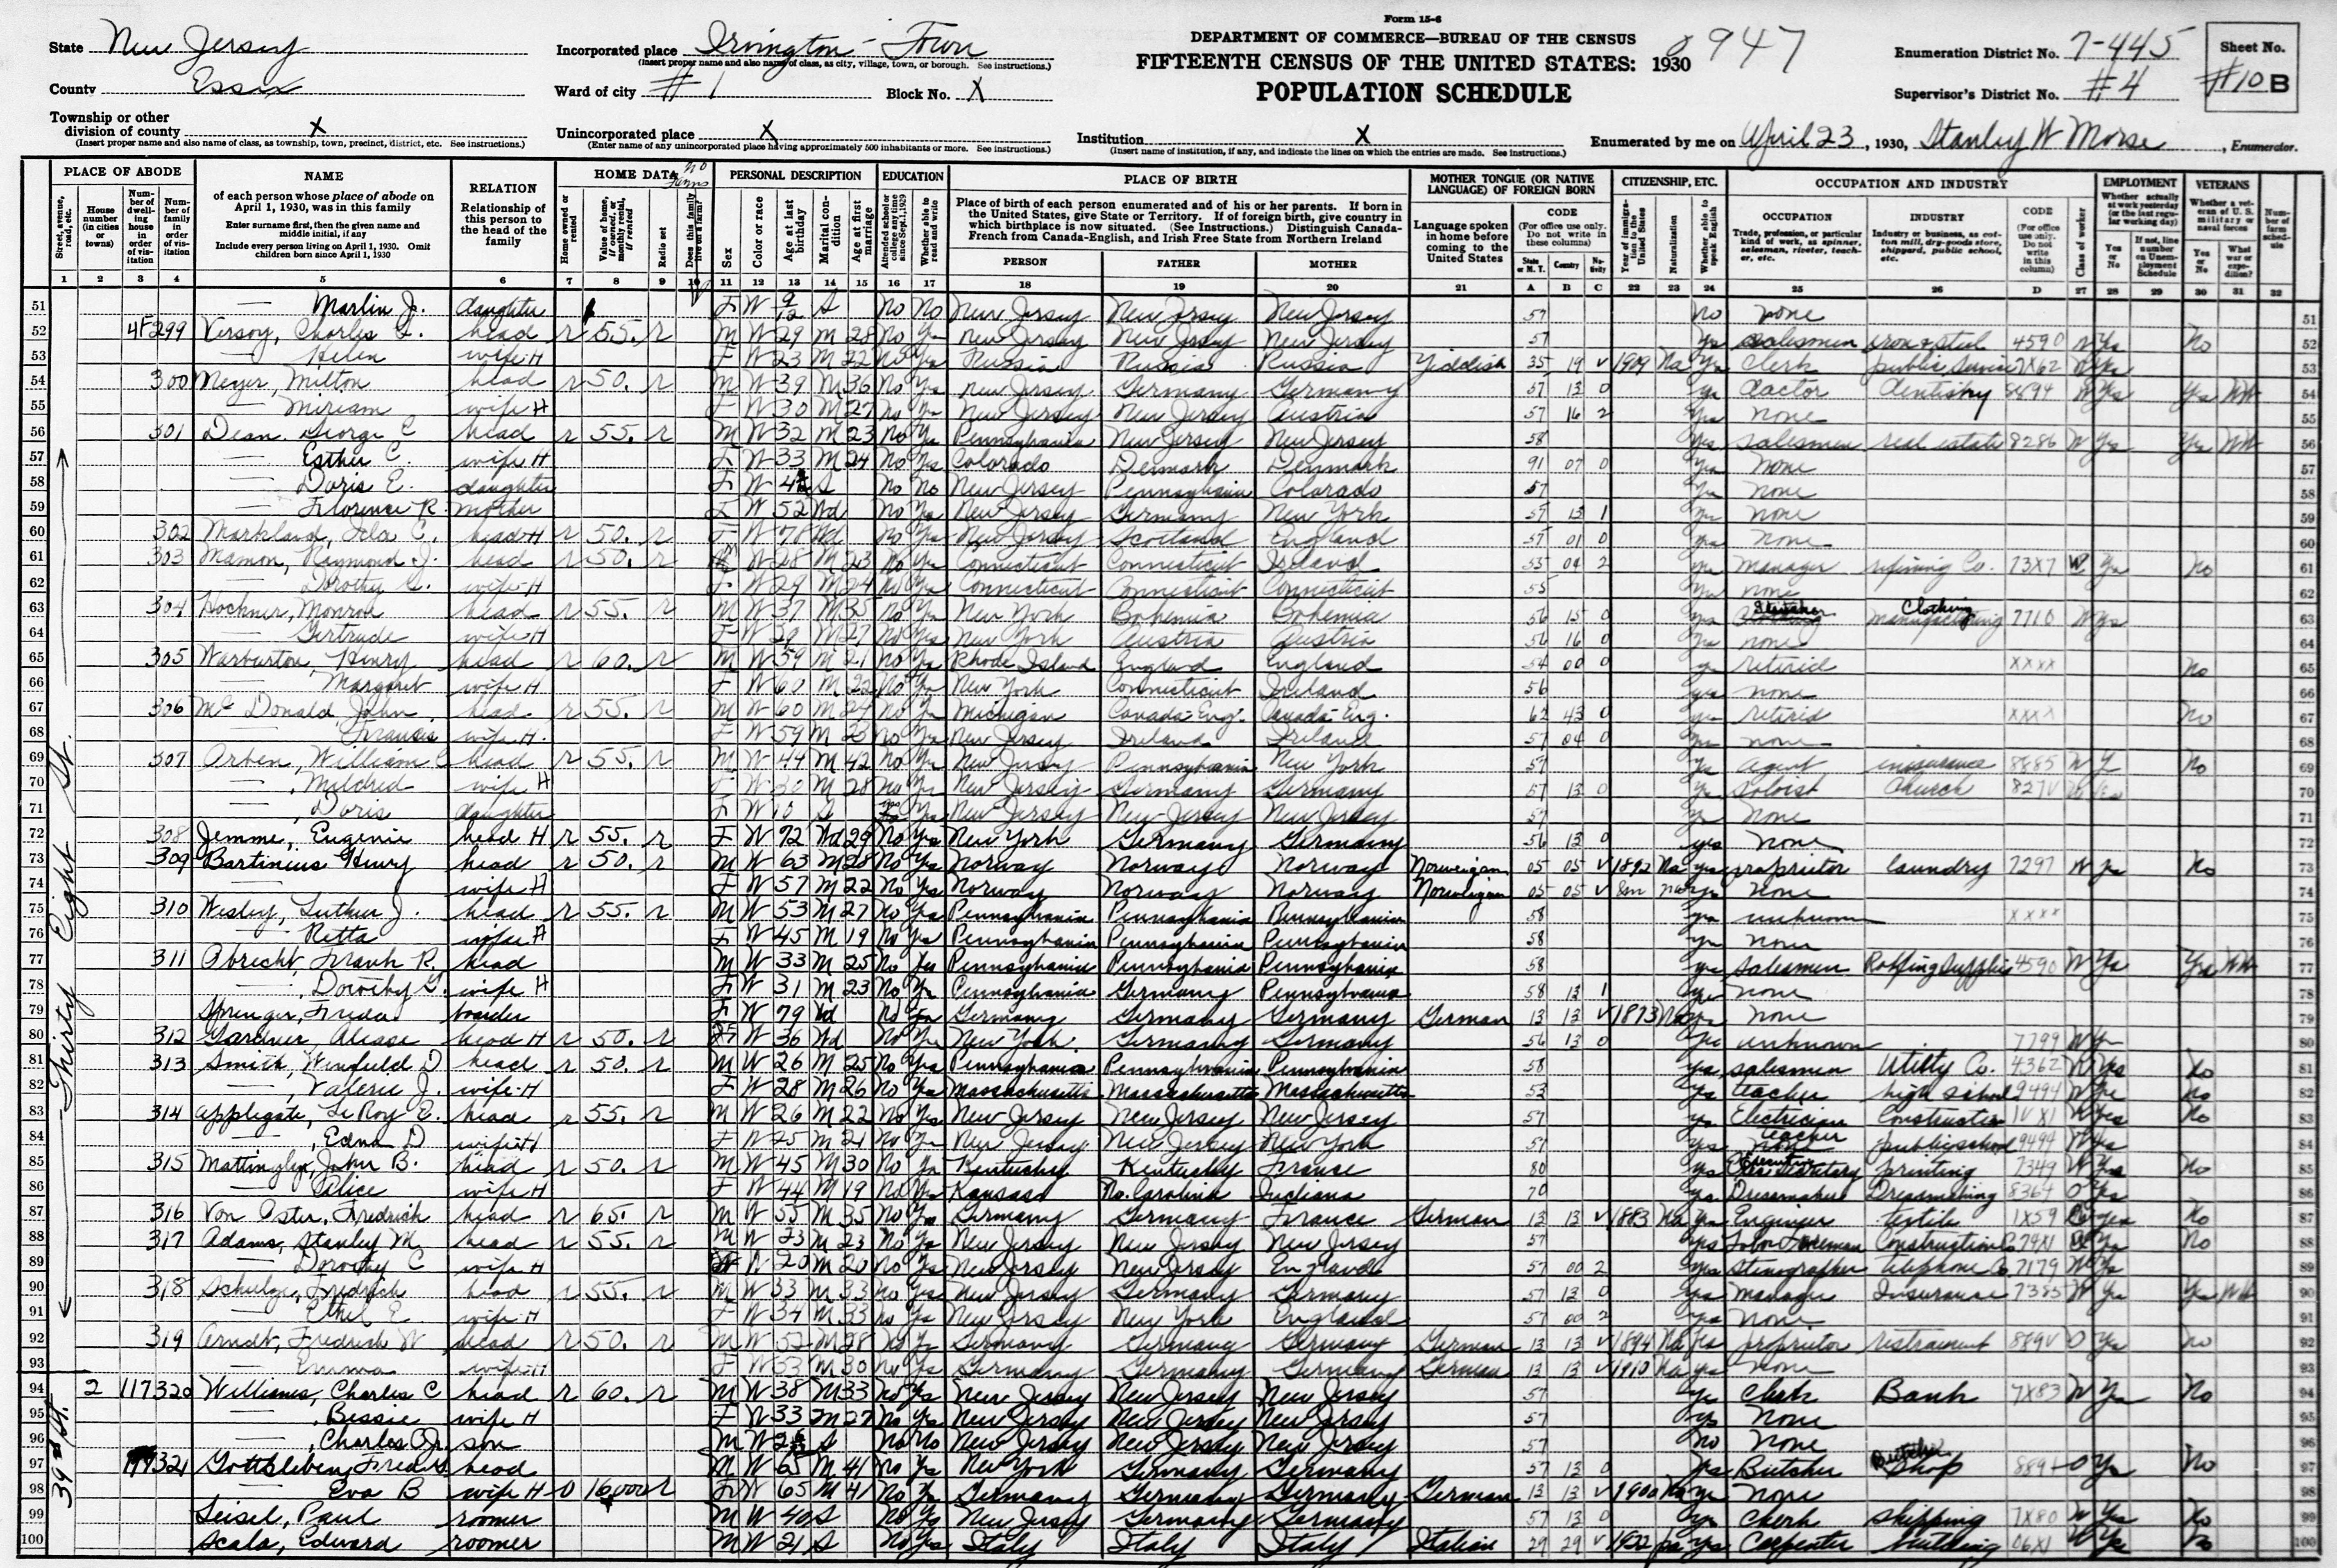 Form 15-6
State New Jersey
Incorporated place Irvington Town
(Insert proper name and also name of class, as city, village, town, or borough. See instructions.)
DEPARTMENT OF COMMERCE—BUREAU OF THE CENSUS
FIFTEENTH CENSUS OF THE UNITED STATES: 1930
POPULATION SCHEDULE
947
Enumeration District No. 7-445
Sheet No.
#10 B
County Essex
Ward of city #1 Block No. X
Supervisor's District No. #4
Township or other division of county X
(Insert proper name and also name of class, as township, town, precinct, district, etc. See instructions.)
Unincorporated place X
(Enter name of any unincorporated place having approximately 500 inhabitants or more. See instructions.)
Institution X
(Insert name of institution, if any, and indicate the lines on which the entries are made. See instructions.)
Enumerated by me on April 23, 1930, Stanley W Morse, Enumerator.
PLACE OF ABODE NAME RELATION HOME DATA PERSONAL DESCRIPTION EDUCATION PLACE OF BIRTH MOTHER TONGUE (OR NATIVE LANGUAGE) OF FOREIGN BORN CITIZENSHIP, ETC. OCCUPATION AND INDUSTRY EMPLOYMENT VETERANS
of each person whose place of abode on April 1, 1930, was in this family
Enter surname first, then the given name and middle initial, if any
Include every person living on April 1, 1930. Omit children born since April 1, 1930
Relationship of this person to the head of the family
Place of birth of each person enumerated and of his or her parents. If born in the United States, give State or Territory. If of foreign birth, give country in which birthplace is now situated. (See Instructions.) Distinguish Canada-French from Canada-English, and Irish Free State from Northern Ireland
PERSON FATHER MOTHER
Language spoken in home before coming to the United States
CODE
(For office use only. Do not write in these columns)
OCCUPATION INDUSTRY CODE
1 2 3 4 5 6 7 8 9 10 11 12 13 14 15 16 17 18 19 20 21 A B C 22 23 24 25 26 D 27 28 29 30 31 32
Thirty Eight St.
51 Marlin J. daughter F W S No No New Jersey New Jersey New Jersey 57 no none
52 299 Charles head r 55. r M W 29 M 28 No Yes New Jersey New Jersey New Jersey 57 Yes salesman iron & steel 4590 W Yes No
53 Helen wife H F W 23 M 22 No Yes Russia Russia Russia Yiddish 35 19 V 1909 Na Yes Clerk public service 7X62 W Yes
54 300 Meyer, Milton head r 50. r M W 39 M 36 No Yes New Jersey Germany Germany 57 13 0 Yes doctor dentistry 8894 Yes Yes WW
55 Miriam wife H F W 30 M 27 No Yes New Jersey New Jersey Austria 57 16 2 Yes none
56 301 Dean, George C head r 55. r M W 32 M 23 No Yes Pennsylvania New Jersey New Jersey 58 Yes salesman real estate 8286 W Yes Yes WW
57 Esther C. wife H F W 33 M 24 No Yes Colorado Denmark Denmark 91 07 0 Yes none
58 Doris E. daughter F W S No No New Jersey Pennsylvania Colorado 57 Yes none
59 Florence R. mother F W 52 Wd No Yes New Jersey Germany New York 57 13 1 Yes none
60 302 Markland, Ida C. head H r 50. r F W 78 Wd No Yes New Jersey Scotland England 57 01 0 Yes none
61 303 Mamon, Raymond J. head r 50. r W 28 M 23 No Yes Connecticut Connecticut Ireland 55 04 2 Yes manager refining Co. 73X7 W Yes No
62 Dorothy wife H F W 29 M 24 No Yes Connecticut Connecticut Connecticut 55 Yes none
63 304 Hochner, Monroe head r 55. r M W 37 M 35 No Yes New York Bohemia Bohemia 56 15 0 Yes Clothing manufacturing 7710 W Yes
64 Gertrude wife H F W 29 M 27 No Yes New York Austria Austria 56 16 0 Yes none
65 305 Warburton, Henry head r 60. r M W 59 M 21 No Yes Rhode Island England England 54 00 0 Yes retired XXXX No
66 Margaret wife H F W 60 M 22 No Yes New York Connecticut Ireland 56 Yes none
67 306 McDonald, John head r 55. r M W 60 M 24 No Yes Michigan Canada-Eng. Canada-Eng. 62 43 0 Yes retired XXXX No
68 Frances wife H F W 59 M 23 No Yes New Jersey Ireland Ireland 57 04 0 Yes none
69 307 Arben, William C head r 55. r M W 44 M 42 No Yes New Jersey Pennsylvania New York 57 Yes agent insurance 8885 W Y No
70 Mildred wife H F W 30 M 28 No Yes New Jersey Germany Germany 57 13 0 Yes soloist Church 827V Yes
71 Doris daughter F W 10 S Yes New Jersey New Jersey New Jersey 57 Yes none
72 308 Jemme, Eugenie head H r 55. r F W 72 Wd 29 No Yes New York Germany Germany 56 13 0 yes none
73 309 Bartinius Henry head r 50. r M W 63 M 28 No Yes Norway Norway Norway Norweigan 05 05 V 1892 Na yes proprietor laundry 7297 W yes No
74 wife H F W 57 M 22 No Yes Norway Norway Norway Norweigan 05 05 V Yes none
75 310 Wesley, Luther J. head r 55. r M W 53 M 27 No Yes Pennsylvania Pennsylvania Pennsylvania 58 yes unknown XXXX
76 Retta wife H F W 45 M 19 No Yes Pennsylvania Pennsylvania Pennsylvania 58 yes none
77 311 Obrecht, Frank R. head M W 33 M 25 No Yes Pennsylvania Pennsylvania Pennsylvania 58 yes salesman Roofing Supplies 4590 W Yes Yes WW
78 Dorothy G. wife H F W 31 M 23 No Yes Pennsylvania Germany Pennsylvania 58 13 1 yes none
79 Sprenger, Frieda boarder F W 79 Wd No Yes Germany Germany Germany German 13 13 V 1873 Na Yes none
80 312 Gardner, Alease head H r 50. r W 36 Wd No Yes New York Germany Germany 56 13 0 Yes unknown 7799 W Yes
81 313 Smith, Winfield D head r 50. r M W 26 M 25 No Yes Pennsylvania Pennsylvania Pennsylvania 58 yes salesman Utility Co. 4362 W Yes No
82 Valerie J. wife H F W 28 M 26 No Yes Massachusetts Massachusetts Massachusetts 53 yes teacher high school 9494 W Yes No
83 314 Applegate, LeRoy E. head r 55. r M W 26 M 22 No Yes New Jersey New Jersey New Jersey 57 ys Electrician Construction 1VX1 W Yes No
84 Edna D wife H F W 25 M 21 No Yes New Jersey New Jersey New York 57 Yes teacher public school 9494 W Yes
85 315 Mattingley, John B. head r 50. r M W 45 M 30 No Yes Kentucky Kentucky France 80 Yes Secretary printing 7349 W Yes No
86 Alice wife H F W 44 M 19 No Yes Kansas No. Carolina Indiana 70 yes Dressmaker Dressmaking 8364 O Yes
87 316 Von Oster, Fredrich head r 65. r M W 55 M 35 No Yes Germany Germany France German 13 13 V 1883 Na Yes Engineer textile 1X59 yes No
88 317 Adams, Stanley M. head r 55. r M W 23 M 23 No Yes New Jersey New Jersey New Jersey 57 Yes Labor Foreman Construction Co 79X1 Yes No
89 Dorothy C wife H W 20 M 20 No Yes New Jersey New Jersey England 57 00 2 Yes stenographer telephone Co. 7179 W Yes
90 318 Schulze, Fredrich head r 55. r M W 33 M 33 No Yes New Jersey Germany Germany 57 13 0 Yes manager Insurance 7385 W Yes Yes WW
91 Ethel E. wife H F W 34 M 33 No Yes New Jersey New York England 57 00 2 yes none
92 319 Arndt, Fredrich W head r 50. r M W 52 M 28 No Yes Germany Germany Germany German 13 13 V 1894 Na Yes proprietor restraurent 889V O Yes no
93 Emma wife H F W 53 M 30 No Yes Germany Germany Germany German 13 13 V 1910 Na yes none
39th St.
94 2 117 320 Williams, Charles C head r 60. r M W 38 M 33 No Yes New Jersey New Jersey New Jersey 57 Yes Clerk Bank 7X83 W Yes No
95 Bessie wife H F W 33 M 27 No Yes New Jersey New Jersey New Jersey 57 Yes None
96 Charles Jr. son M W S No No New Jersey New Jersey New Jersey 57 no None
97 321 Gottsleben, Fred head M W 65 M 41 No Yes New York Germany Germany 57 13 0 yes Butcher Butcher Shop O Yes No
98 Eva B wife H O 16000 r F W 65 M 41 No Yes Germany Germany Germany German 13 13 V 1900 Na Yes none
99 Seisel, Paul roomer M W 40 S No Yes New Jersey Germany Germany 57 13 0 Yes Clerk shipping 7X80 W Yes No
100 Scala, Edward roomer M W 21 S No Yes Italy Italy Italy Italian 29 29 V 1922 pa Yes Carpenter building 06X1 W Yes No